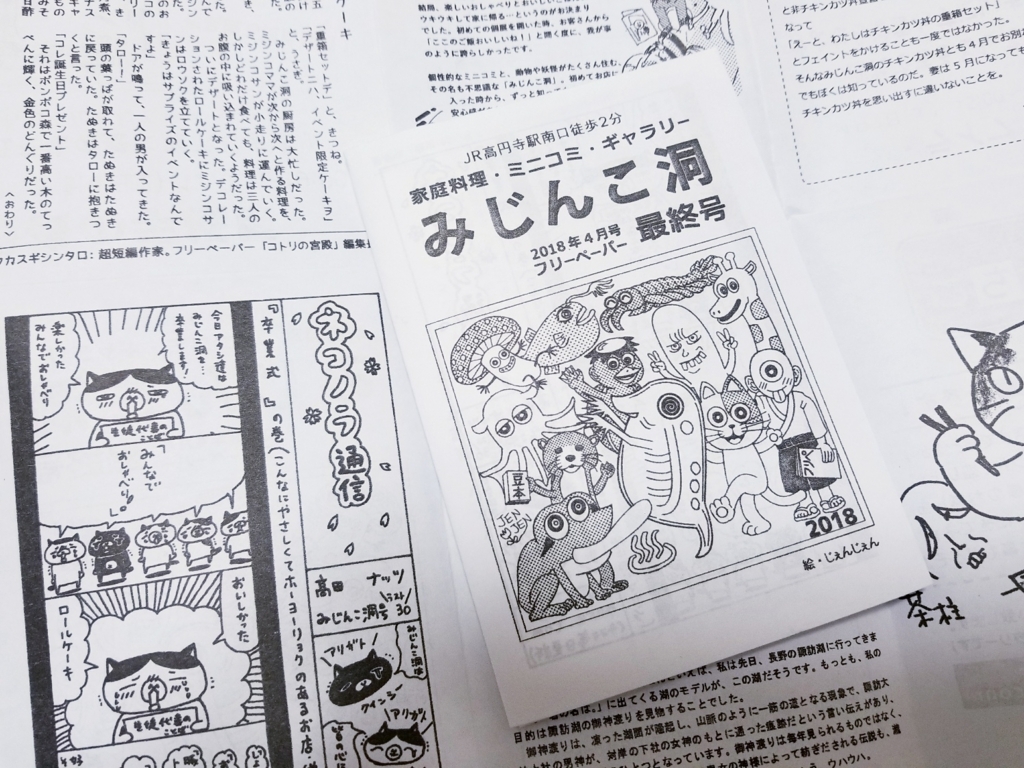 ケーキ
「重箱セットデ」と、きつね。
「デザートニハ、イベント限定ケーキヲ」
と、うさぎ。
みじんこ洞の厨房は大忙しだった。
ミジンコママが次から次へと作る料理を、
ミジンコサンが小走りに運んでいく。
しかしどれだけ食べても、料理は三人の
お腹の中に吸い込まれていくようだった。
ついにデザートとなった。デコレー
ションされたロールケーキにミジンコサ
ンはロウソクを立てていく。
「きょうはサプライズのイベントなんで
すよ」
ドアが鳴って、一人の男が入ってきた。
「タロー！」
頭の葉っぱが取れて、たぬきはたぬき
に戻っていた。たぬきはタローに抱きつ
くと言った。
「コレ誕生日プレゼント」
それはポンポコ森で一番高い木のてっ
ぺんに輝く、金色のどんぐりだった。
〈おわり〉
タカスギシンタロ：超短編作家。フリーペーパー「コトリの宮殿」編集
ネコノラ通信
『卒業式』の巻（こんなにやさしくてホーヨーリョクのあるお店
高田ナッツ
みじんこ洞号
ラスト
30
今日アタシ達は
みじんこ洞を…
卒業します！
楽しかった
みんなでおしゃべり
生徒代表の
ことば
「みんなで
おしゃべり。」
おいしかった
ロールケーキ
生徒代表の
ことば
みじんこ洞は
アリガト
アリガ
ウキウキして家に帰る…というのがお決まり
でした。初めての個展を開いた時、お客さんから
「ここのご飯おいしいね！」と聞く度に、我が事
のように誇らしかったです。
個性的なミニコミと、動物や妖怪がたくさん住む、
その名も不思議な「みじんこ洞」。初めてお店に
入った時から、ずっと
なって
「えーと、わたしはチキンカツ丼の重箱セット」
とフェイントをかけることも一度ではなかった。
そんなみじんこ洞のチキンカツ丼とも4月でお別
でもぼくは知っているのだ。妻は5月になっても
チキンカツ丼を思い出すに違いないことを。
JR高円寺駅南口徒歩2分
家庭料理・ミニコミ・ギャラリー
みじんこ洞
2018年4月号
フリーペーパー
最終号
豆本
JENJEN
ペシル
2018
絵・じぇんじぇん
茶柱
いえば、私は先日、長野の諏訪湖に行ってきま
に出てくる湖のモデルが、この湖だそうです。もっとも、私の
目的は諏訪湖の御神渡りを見物することでした。
御神渡りは、凍った湖面が隆起し、山脈のように一筋の道となる現象で、諏訪大
社上社の男神が、対岸の下社の女神のもとに通った痕跡だという言い伝えがあり、
ひとつとなっています。御神渡りは毎年見られるものではなく、
女の神様によって紡ぎだされる伝説も、農
う、ウハウハ。